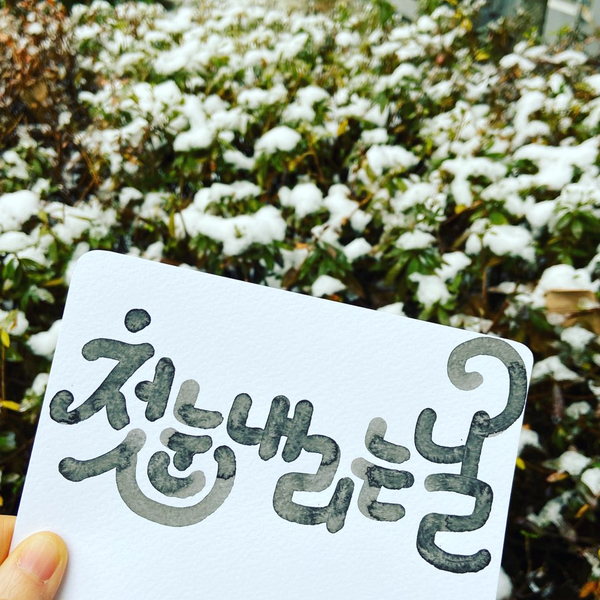 첫눈 내리는 날